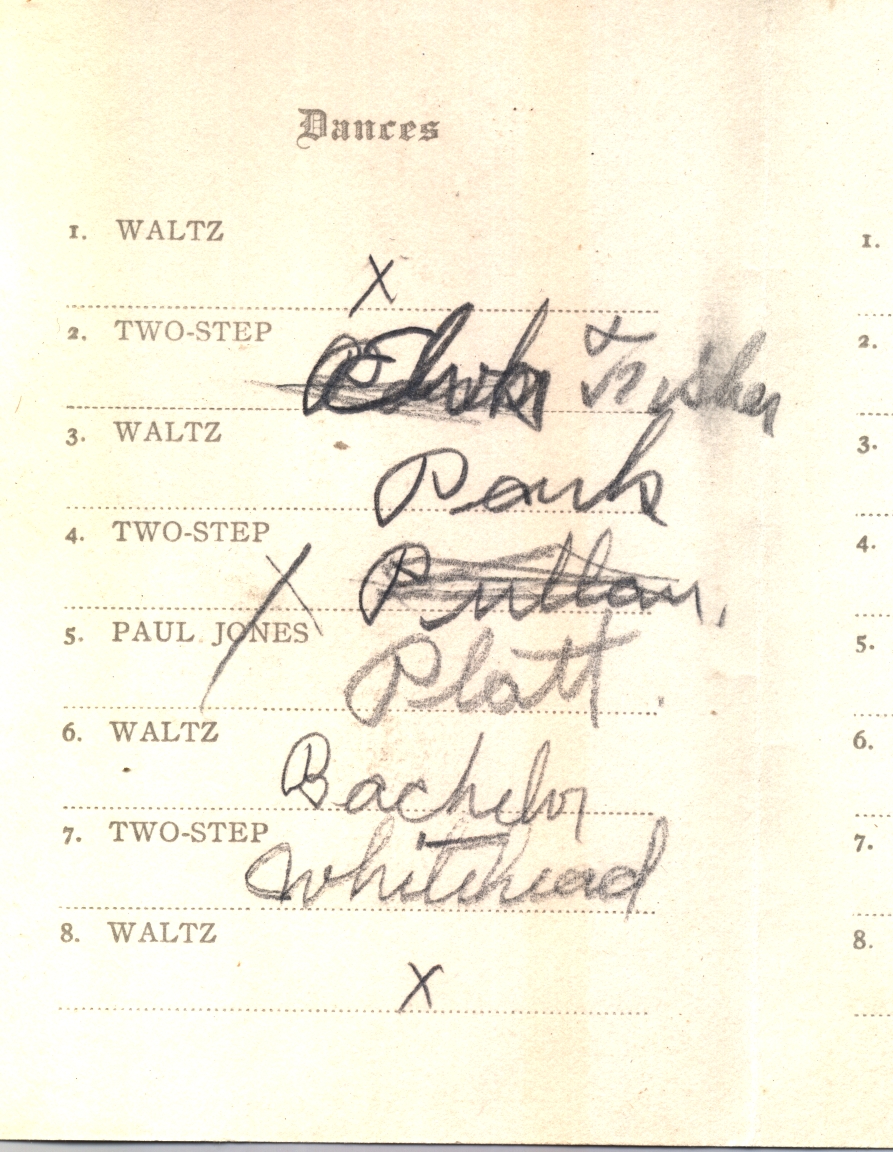 Dances
1. WALTZ
X
2. TWO-STEP
& Fisher
3. WALTZ
Park
4. TWO-STEP
5. PAUL JONES X
Platt.
6. WALTZ
Bachelor
7. TWO-STEP
Whitehead
8. WALTZ
X
1.
2.
3.
4.
5.
6.
7.
8.